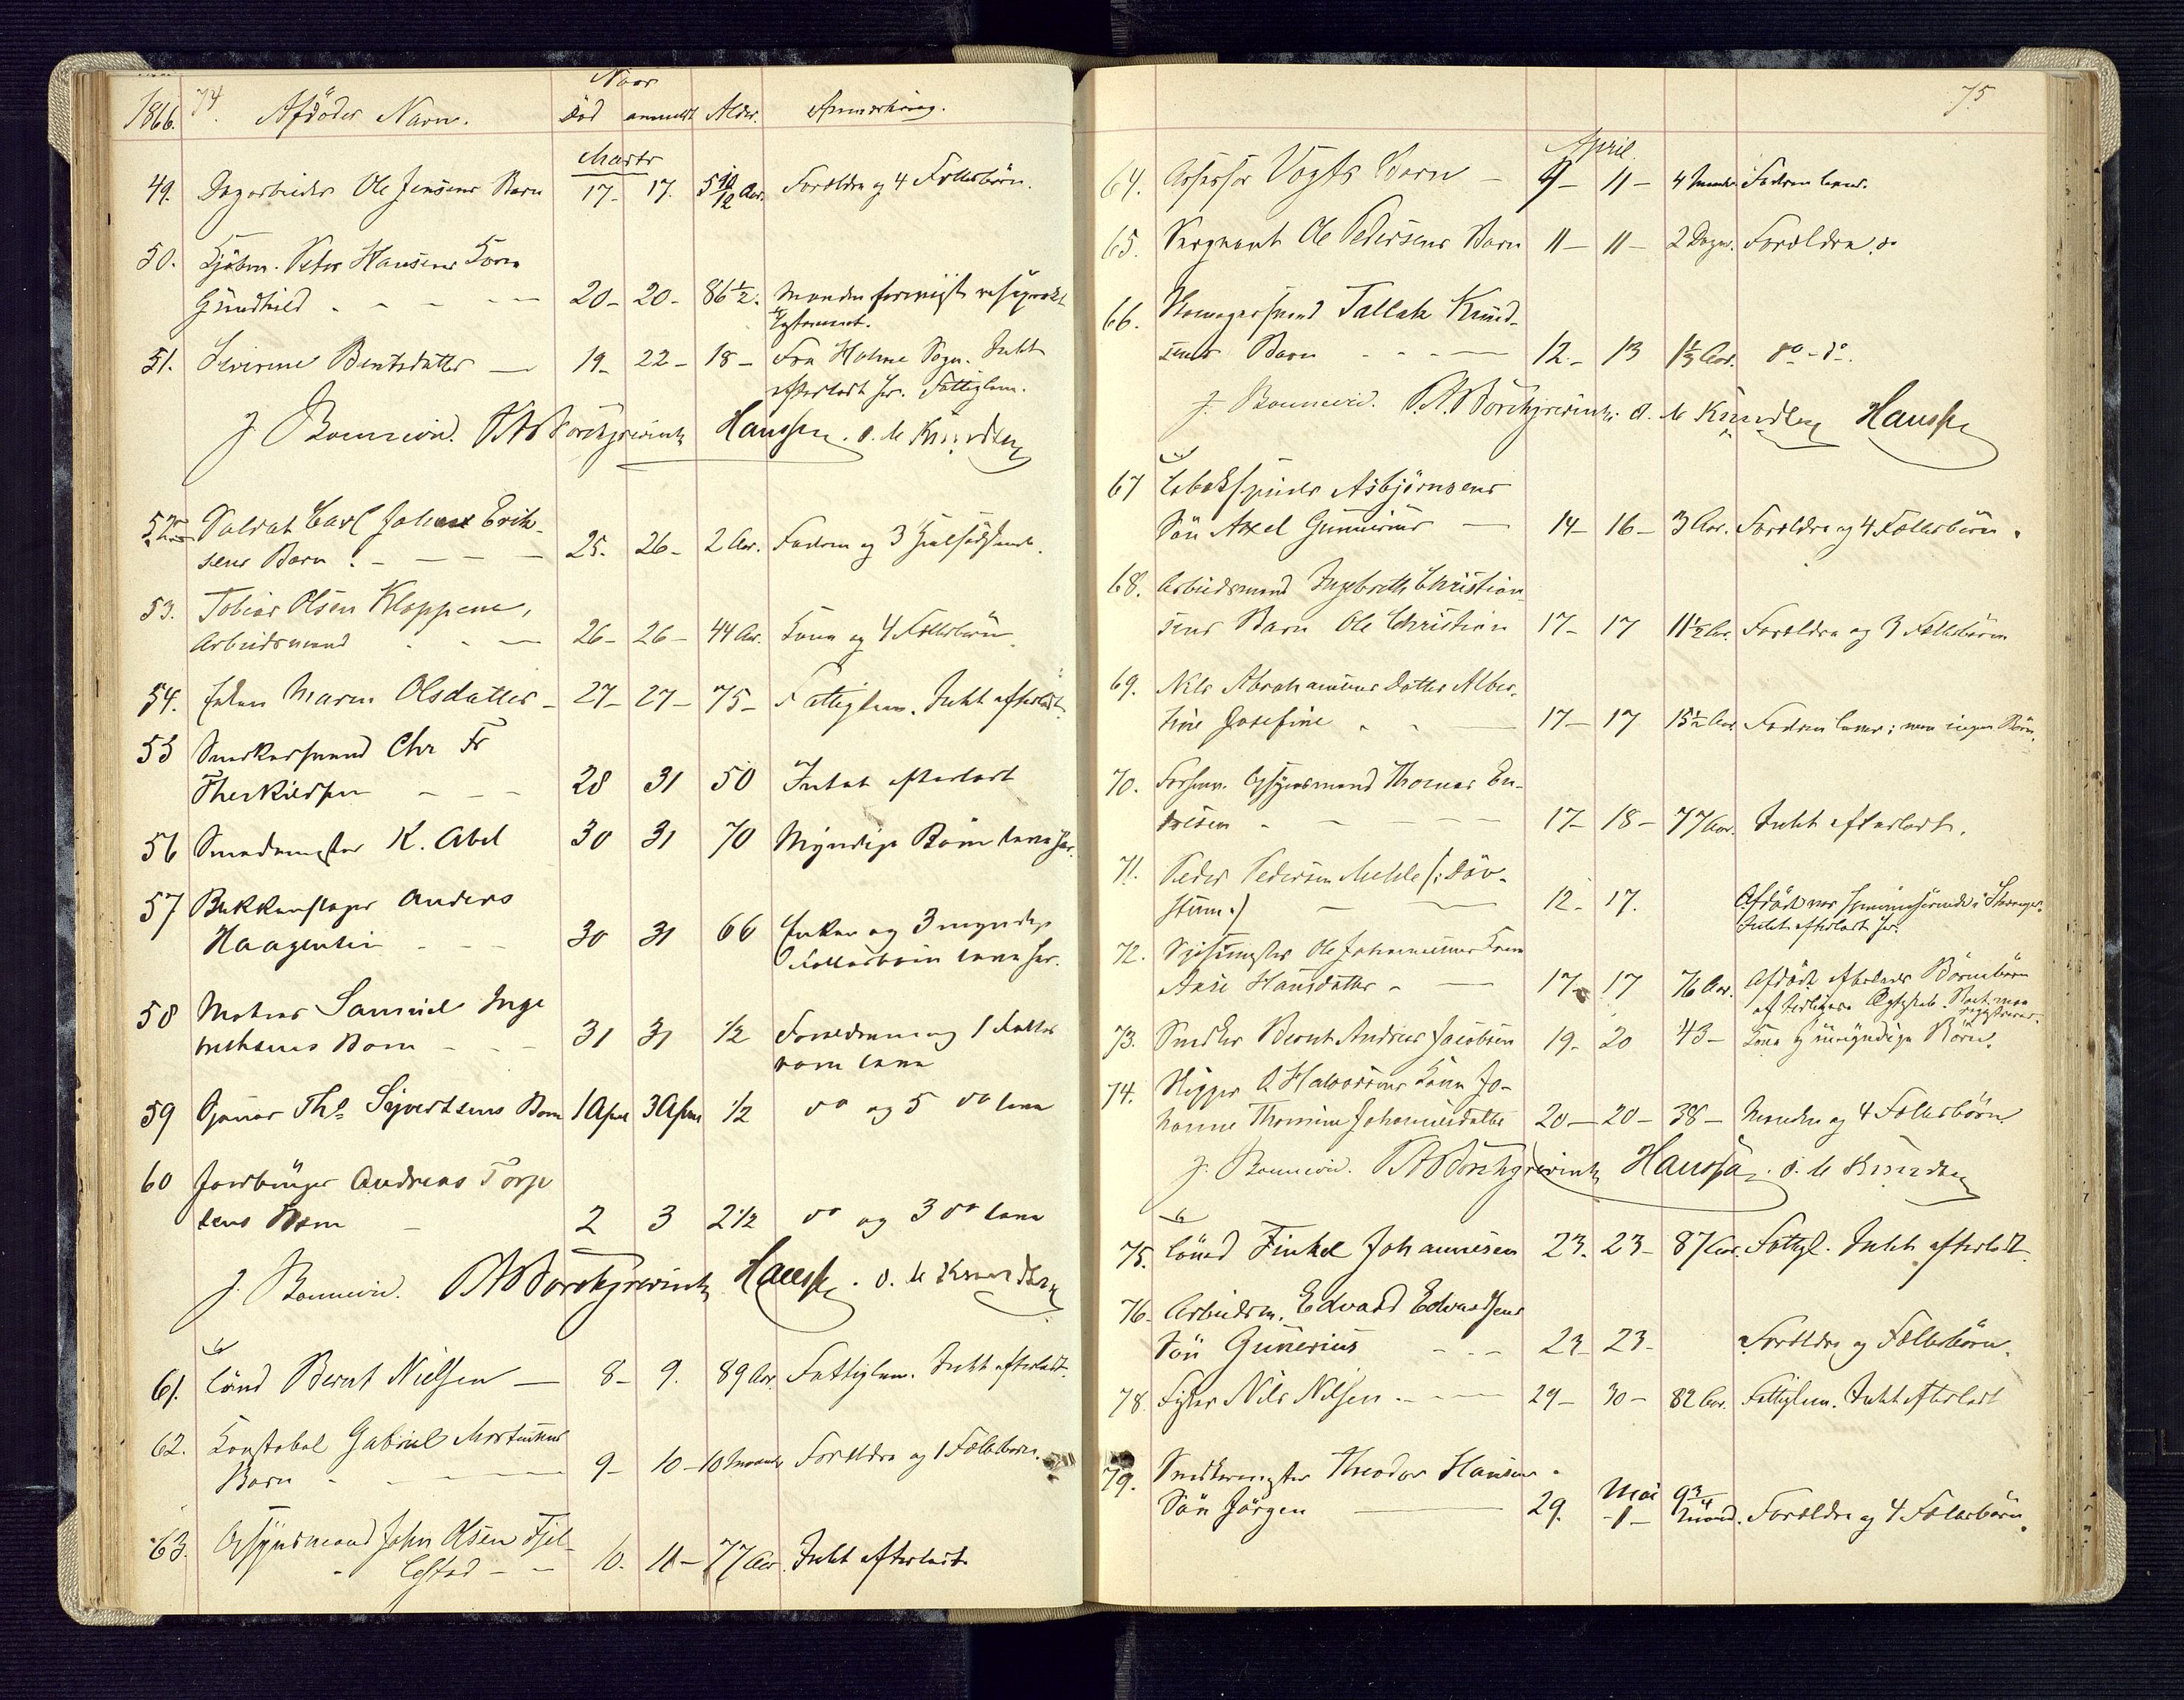 1866. 74. Afdødes Navn. Naar død anmeldt Alder. Anmærkning.
Marts
49. Dagarbeider Ole Jensens Barn 17- 17. 5 10/12 Aar. Forældre og 4 Fællesbörn.
50. Kjøbm. Peter Hansens Kone
Gundhild - - - 20- 20- 86 1/2. Manden forevist resiprokt
Testament.
51. Severine Bentsdatter — 19- 22- 18- Fra Holme Sogn. Intet
efterladt her. Fattiglem.
J. Bonnevie. Borchgrevink Hanssen. O. M. Knudsen
52. Soldat Carl Johan Erik-
sens Barn. - - - 25. 26- 2 Aar. Faderen og 3 Hælsødskende.
53. Tobias Olsen Kloppene,
Arbeidsmand - - 26- 26- 44 Aar. Kone og 4 Fællesbörn.
54. Enken Maren Olsdatter - 27- 27- 75- Fattiglem. Intet efterladt.
55 Snedkersvend Chr Fr
Therkildsen - - - 28 31 50 Intet efterladt
56 Smedemester K. Abel 30 31 70 Myndige Börn leve her.
57 Bækkenslager Anders
Haagensen - - - 30 31 66 Enken og 3 myndige
Fællesbörn leve her.
58 Matros Samuel Inge
bretsens Barn - - - 31 31 1/2 Forældrene og 1 Fælles
barn leve
59 Ths Syvertsens Barn 1 April 3 April 1/2 do og 5 do leve
60 Jordbruger Andreas Torje
sens Barn - 2 3 2 1/2 do og 3 do leve
J. Bonnevie. Borchgrevink Hanssen. O. M. Knudsen
61. Lönd Bernt Nielsen — 8- 9. 89 Aar. Fattiglem. Intet efterladt.
62. Konstabel Gabriel Mortensens
Barn - - - 9- 10- 10 Maaneder Forældre og 1 Fællesbarn.
63. Opsynsmand John Olsen Fjel-
lestad - - 10. 11- 77 Aar. Intet efterladt
75.
April
64. Assessor Vogts Barn - 9- 11- 4 Maaneder Faderen lever.
65. Sergeant Ole Pedersens Barn 11- 11- 2 Dage. Forældre. do
66. Skomagersvend Tallak Knud-
sens Barn - - - 12- 13 1 1/3 Aar. do - do.
J. Bonnevie. Borchgrevink. O. M. Knudsen Hanssen
67 Tobakspinder Asbjörnsens
Sön Axel Gunerius — 14- 16- 3 Aar. Forældre og 4 Fællesbörn.
68. Arbeidsmand Ingebreth Christian-
sens Barn Ole Christian 17- 17 11 1/2 Aar. Forældre og 3 Fællesbörn
69. Nils Abrahamsens Datter Alber-
tine Josefine - - 17- 17 15 1/2 Aar. Faderen lever; men ingen Börn.
70. Forhenv. Opsynsmand Thomas En-
dresen - - - 17- 18- 77 Aar. Intet efterladt.
71. Peder Pedersen Mehle /: Döv-
stum :/ — 12- 17. Afdöde var hjemmehörende i Stavanger.
Intet efterladt her.
72. Ole Johannesens Kone
Anne Hansdatter - — 17- 17 76 Aar. Afdöde efterlader Börnebörn
af tidligere Ægteskab. Boet maa registreres.
73. Snedker Bernt Andreas Jacobsen 19- 20 43- Kone og umyndige Börn.
74. Rigger A. Halvorsens Kone Jo-
hanne Thomine Johannesdatter 20- 20- 38- Manden og 4 Fællesbörn.
J. Bonnevie. Borchgrevink Hanssen. O. M. Knudsen
75. Lönd Finkel Johannesen 23. 23- 87 Aar. Fattigl. Intet efterladt.
76. Arbeidsm. Edvard Edvardsens
Sön Gunerius - - - 23- 23- Forældre og Fællesbörn.
78. Nils Nilsen - - - 29- 30- 82 Aar. Fattiglem. Intet efterladt
79. Snedkermester Theodor Hansens
Sön Jörgen — 29. Mai -1- 9 3/4 Maaned. Forældre og 4 Fællesbörn.